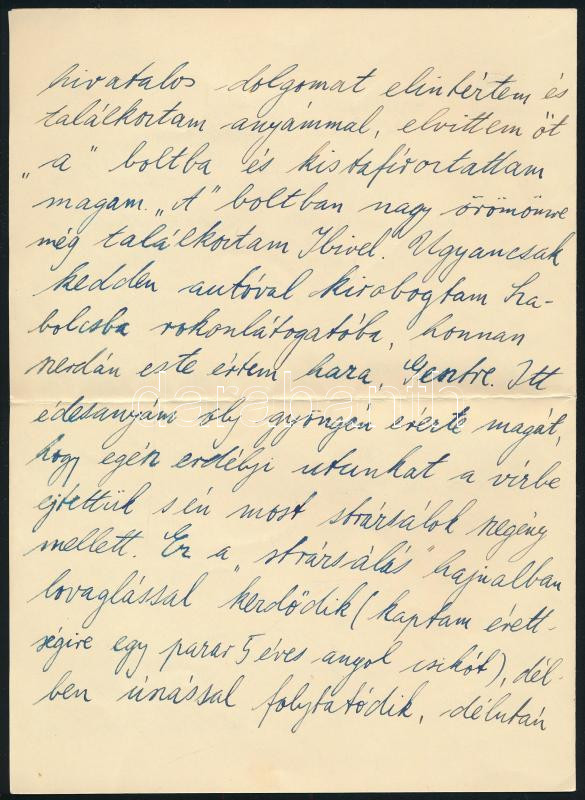 hivatalos dolgomat elintéztem és
találkoztam anyámmal, elvittem őt
„a" boltba és kistafíroztattam
magam. „A" boltban nagy örömömre
még találkoztam Ibivel. Ugyancsak
kedden autóval kirobogtam Sza-
bolcsba rokonlátogatóba, honnan
szerdán este értem haza, Gesztre. Itt
édesanyám oly gyöngén érezte magát,
hogy egész erdélyi utunkat a vízbe
ejtettük s én most strázsálok szegény
mellett. Ez a „strázsálás" hajnalban
lovaglással kezdődik (kaptam érett-
ségire egy pazar 5 éves angol csikót), dél-
ben úszással folytatódik, délután
darabanth